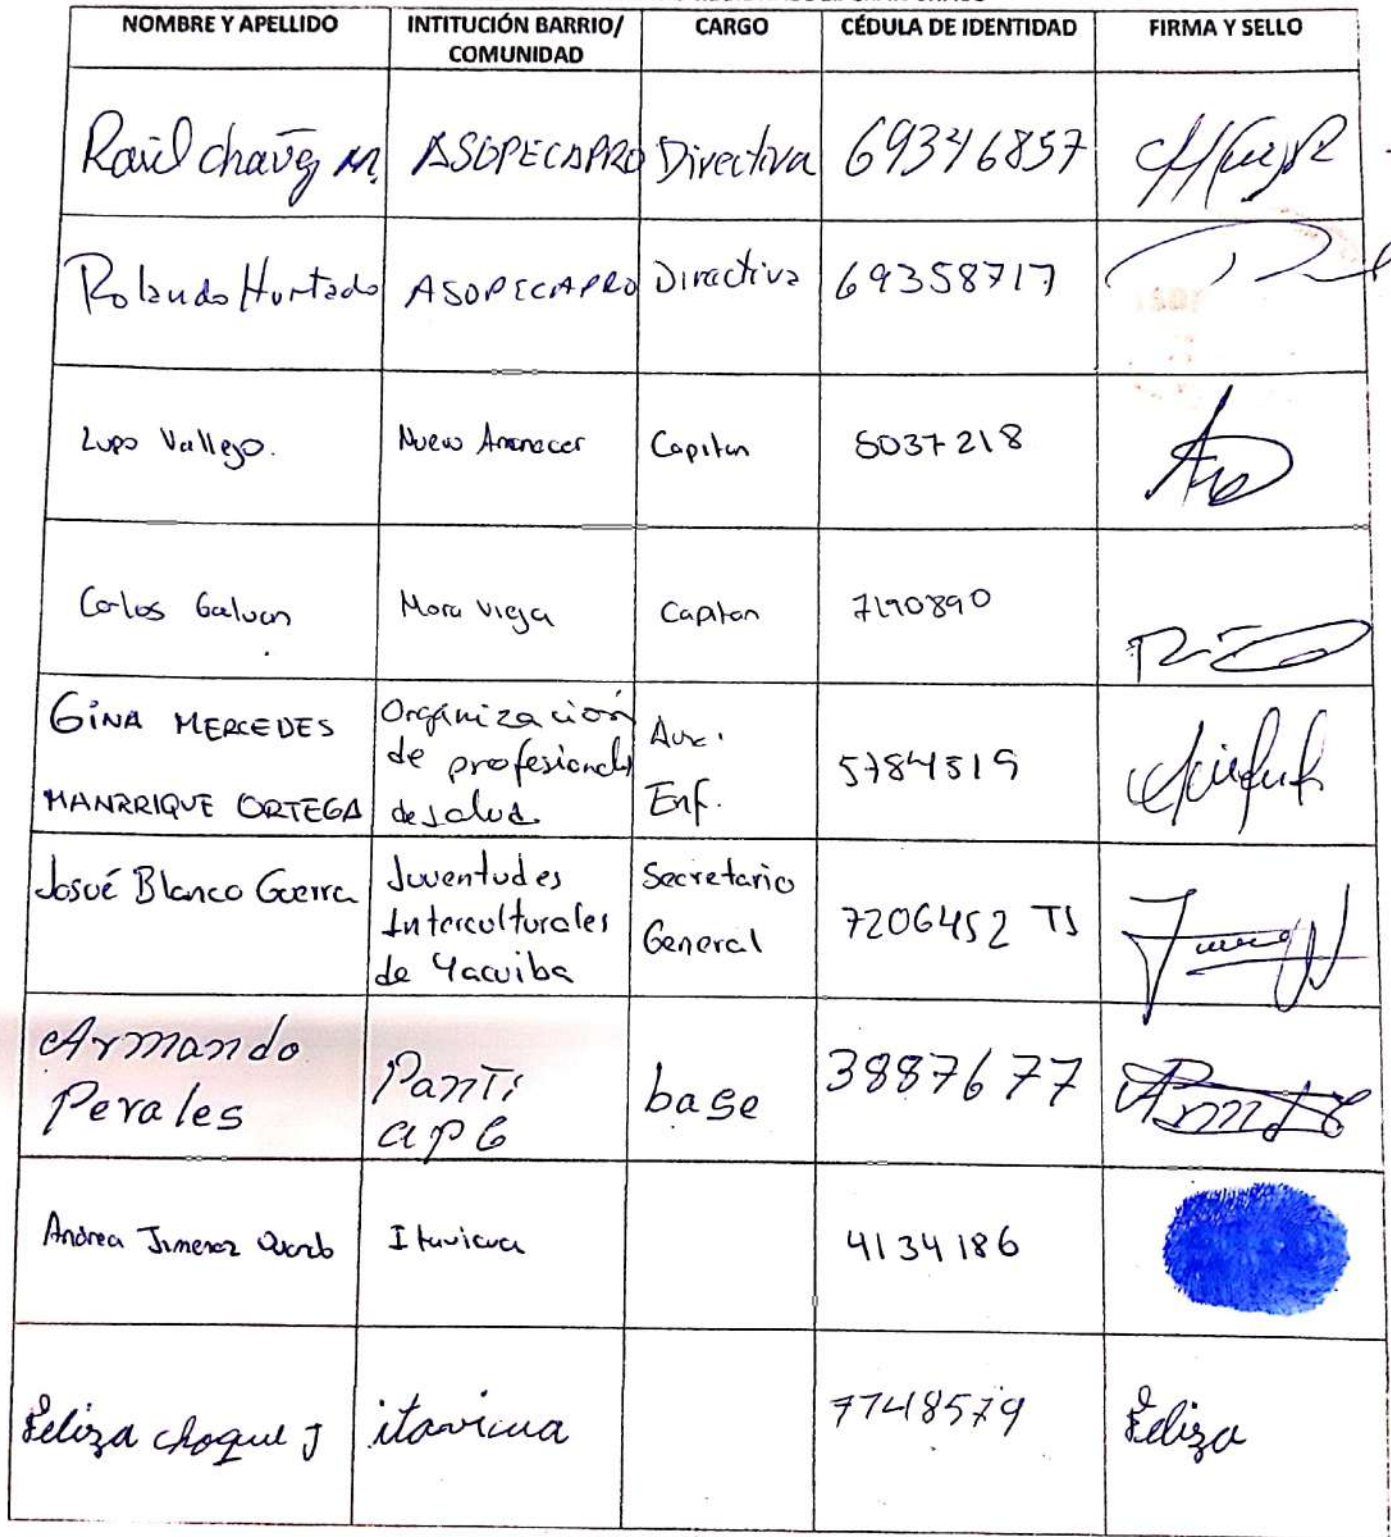 NOMBRE Y APELLIDO INTITUCIÓN BARRIO/ COMUNIDAD CARGO CÉDULA DE IDENTIDAD FIRMA Y SELLO
Raúl chavez M. ASOPECAPRO Directiva 69346857
Rolando Hurtado ASOPECAPRO Directiva 69358717
Lupo Vallejo. Nuevo Amanacer Capitan 5037218
Carlos Galvan Mora vieja Capitan 7190890
GINA MERCEDES
MANRRIQUE ORTEGA
Organización
de profesionales
de salud.
Aux.
Enf.
5784519
Josué Blanco Guerra
Juventudes
Interculturales
de Yacuiba
Secretario
General
7206452 TJ
Armando
Perales
Panti
base
3887677
Andrea Jimenez Itavicua 4134186
Feliza choque J itavicua 7748579 Feliza